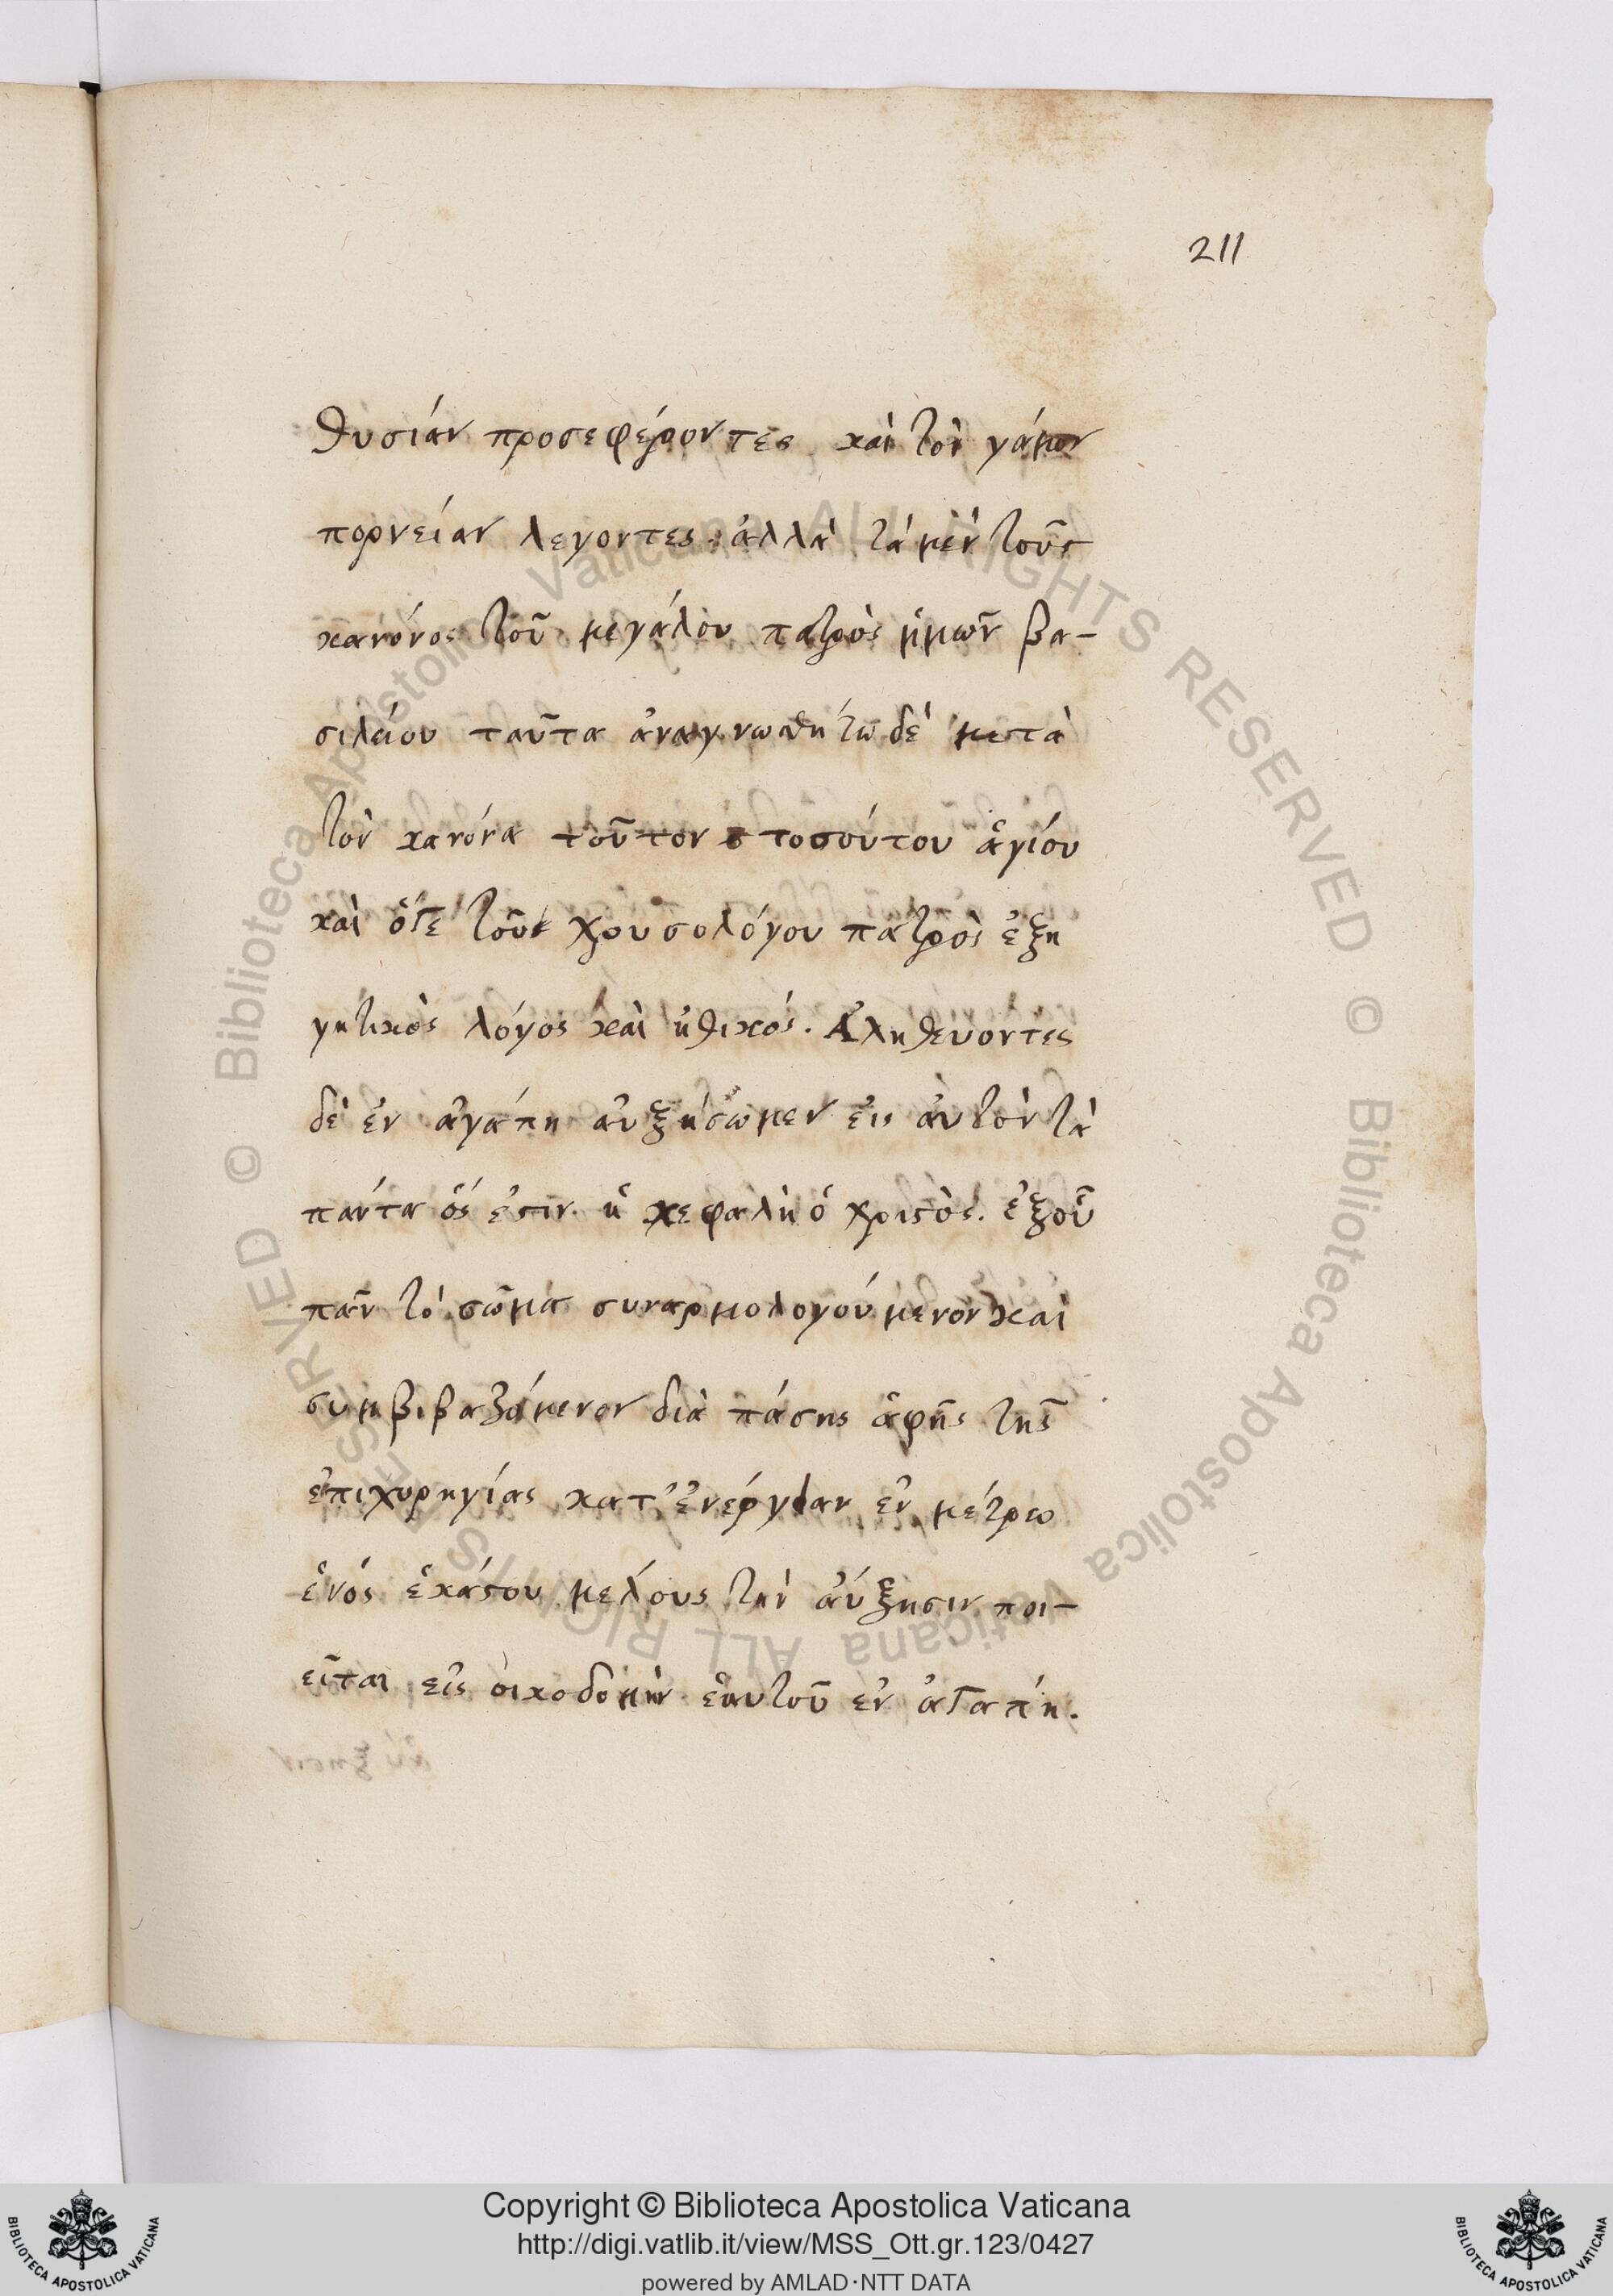 211
θυσίαν προσεφέροντες καὶ τὸν γάμον
πορνείαν λεγοντες. ἀλλὰ τὰ μὲν τοῦς
κανόνος τοῦ μεγάλου πατρὸς ἡμῶν βα-
σιλείου ταῦτα ἀναγνωθήτω δὲ μετὰ
τὸν κανόνα τοῦτον τοσούτου ἁγίου
καὶ ὅγε τοῦ χρυσολόγου πατρὸς ἐξη
γητικὸς λόγος καὶ ἠθικός. Ἀληθευοντες
δὲ ἐν ἀγάπη αὐξήσωμεν εἰς ἀυτὸν τὰ
πάντα ὅς ἐστιν ἡ κεφαλὴ ὁ χριστὸς. ἐξοὗ
πᾶν τὸ σῶμα συναρμολογούμενον καὶ
συμβιβαζόμενον διὰ πάσης ἁφῆς τῆς
ἐπιχορηγίας κατ' ἐνέργειαν ἐν μέτρω
ἑνός ἑκάστου μελους τὴν ἀύξησιν ποι-
εῖται εἰς οἰκοδομὴν ἑαυτοῦ ἐν ἀγαπή.
Copyright © Biblioteca Apostolica Vaticana
http://digi.vatlib.it/view/MSS_Ott.gr.123/0427
powered by AMLAD·NTT DATA
BIBLIOTECA APOSTOLICA VATICANA
BIBLIOTECA APOSTOLICA VATICANA
© Biblioteca Apostolica Vaticana ALL RIGHTS RESERVED © Biblioteca Apostolica Vaticana ALL RIGHTS RESERVED